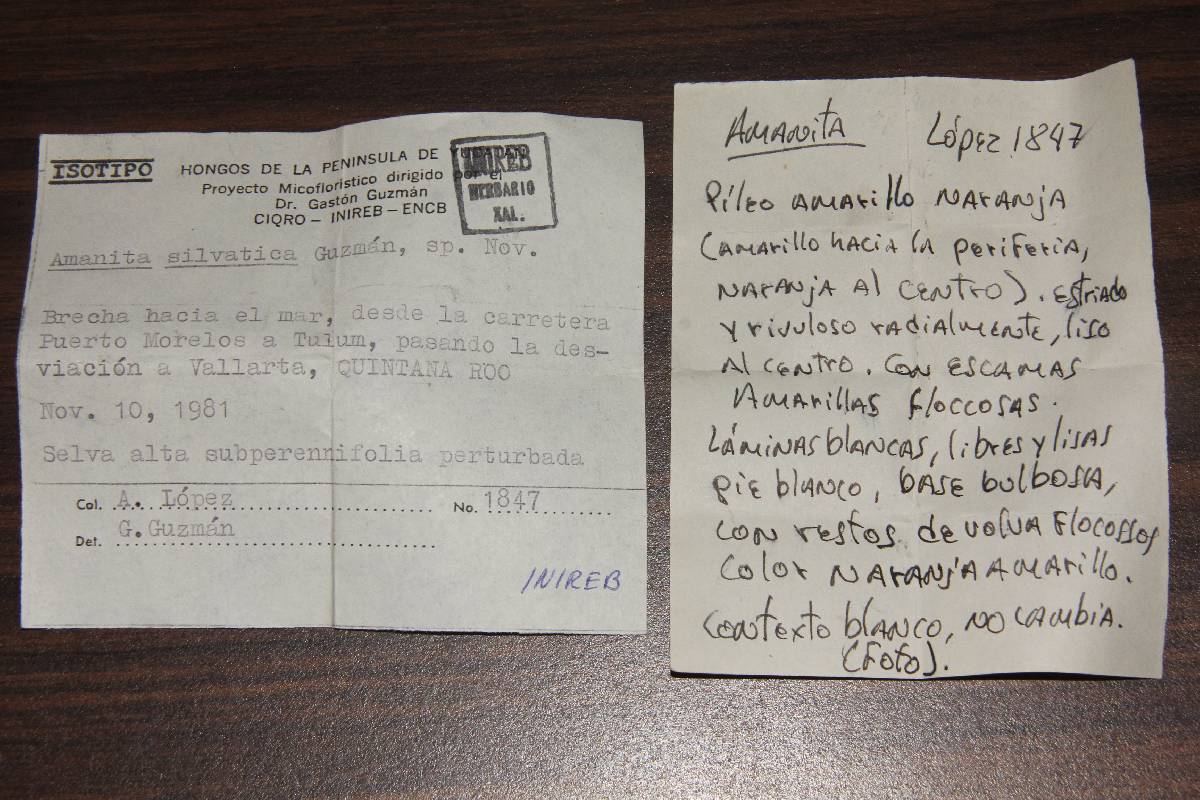 ISOTIPO
HONGOS DE LA PENINSULA DE
Proyecto Micoflorístico dirigido por el
Dr. Gastón Guzmán
CIQRO - INIREB - ENCB
INIREB
HERBARIO
XAL.
Amanita silvatica Guzmán, sp. Nov.
Brecha hacia el mar, desde la carretera
Puerto Morelos a Tulum, pasando la des-
viación a Vallarta, QUINTANA ROO
Nov. 10, 1981
Selva alta subperennifolia perturbada
Col. A. López No. 1847
G. Guzmán
Det.
INIREB
AMANITA López 1847
Píleo amarillo naranja
(amarillo hacia la periferia,
naranja al centro). Estriado
y rivuloso radialmente, liso
al centro. Con escamas
amarillas floccosas.
Láminas blancas, libres y lisas
pie blanco, base bulbosa,
con restos de volva flocossos
color naranja amarillo.
Contexto blanco, no cambia.
(Foto).